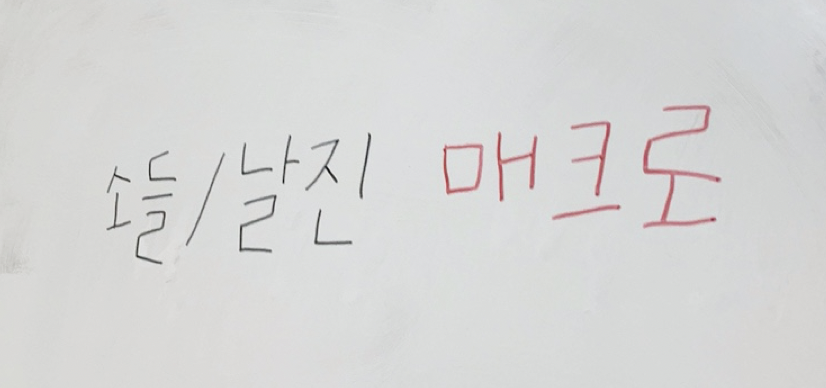 소들/날진 매크로